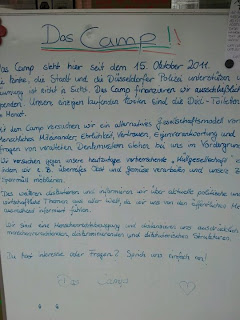 Das Camp!!
Das Camp steht hier seit dem 15. Oktober 2011.
Kirche, die Stadt und die Düsseldorfer Polizei unterstützen
Räumung ist nicht in Sicht. Das Camp finanzieren wir ausschließlich
Spenden. Unsere einzigen laufenden Kosten sind die Dixi-Toiletten
Monat.
Mit dem Camp versuchen wir ein alternatives Gesellschaftsmodell vor
Menschliches Miteinander, Ehrlichkeit, Vertrauen, Eigenverantwortung und
Fragen von veralteten Denkmustern stehen bei uns im Vordergrund
Wir versuchen gegen unsere heutzutage vorherrschende "Wegwerfgesellschaft"
indem wir z.B. übereifes Obst und Gemüse verarbeiten und unsere
Sperrmüll möblieren.
Des weiteren diskutieren und informieren wir über aktuelle politische und
wirtschaftliche Themen aus aller Welt, da wir uns von den öffentlichen
informiert fühlen.
Wir sind eine Menschenrechtsbewegung und distanzieren uns ausdrücklich
menschenverachtenden, diskriminierenden und diktatorischen Strukturen.
Du hast Interesse oder Fragen? Sprich uns einfach an!
Camp